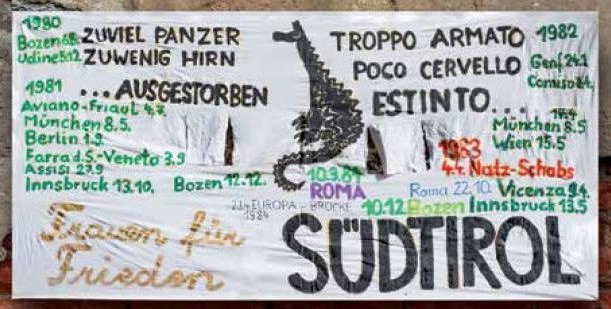 1980
Bozen 6.8.
Udine 5.12
ZUVIEL PANZER
ZUWENIG HIRN
...AUSGESTORBEN
1981
Aviano-Friaul 4.7.
München 8.5.
Berlin 1.9.
Farra d.S.-Veneto 3.9
Assisi 27.9
Innsbruck 13.10.
Bozen 12.12.
TROPPO ARMATO
POCO CERVELLO
ESTINTO...
1982
Genf 24.1
Comiso
München 8.5
Wien 15.5
1983
4.4. Natz-Schabs
10.9.81
ROMA
Roma 22.10.
Vicenza
EUROPA-BRÜCKE
1984
10.12 Bozen
Innsbruck 13.5
Frauen für
Frieden
SÜDTIROL